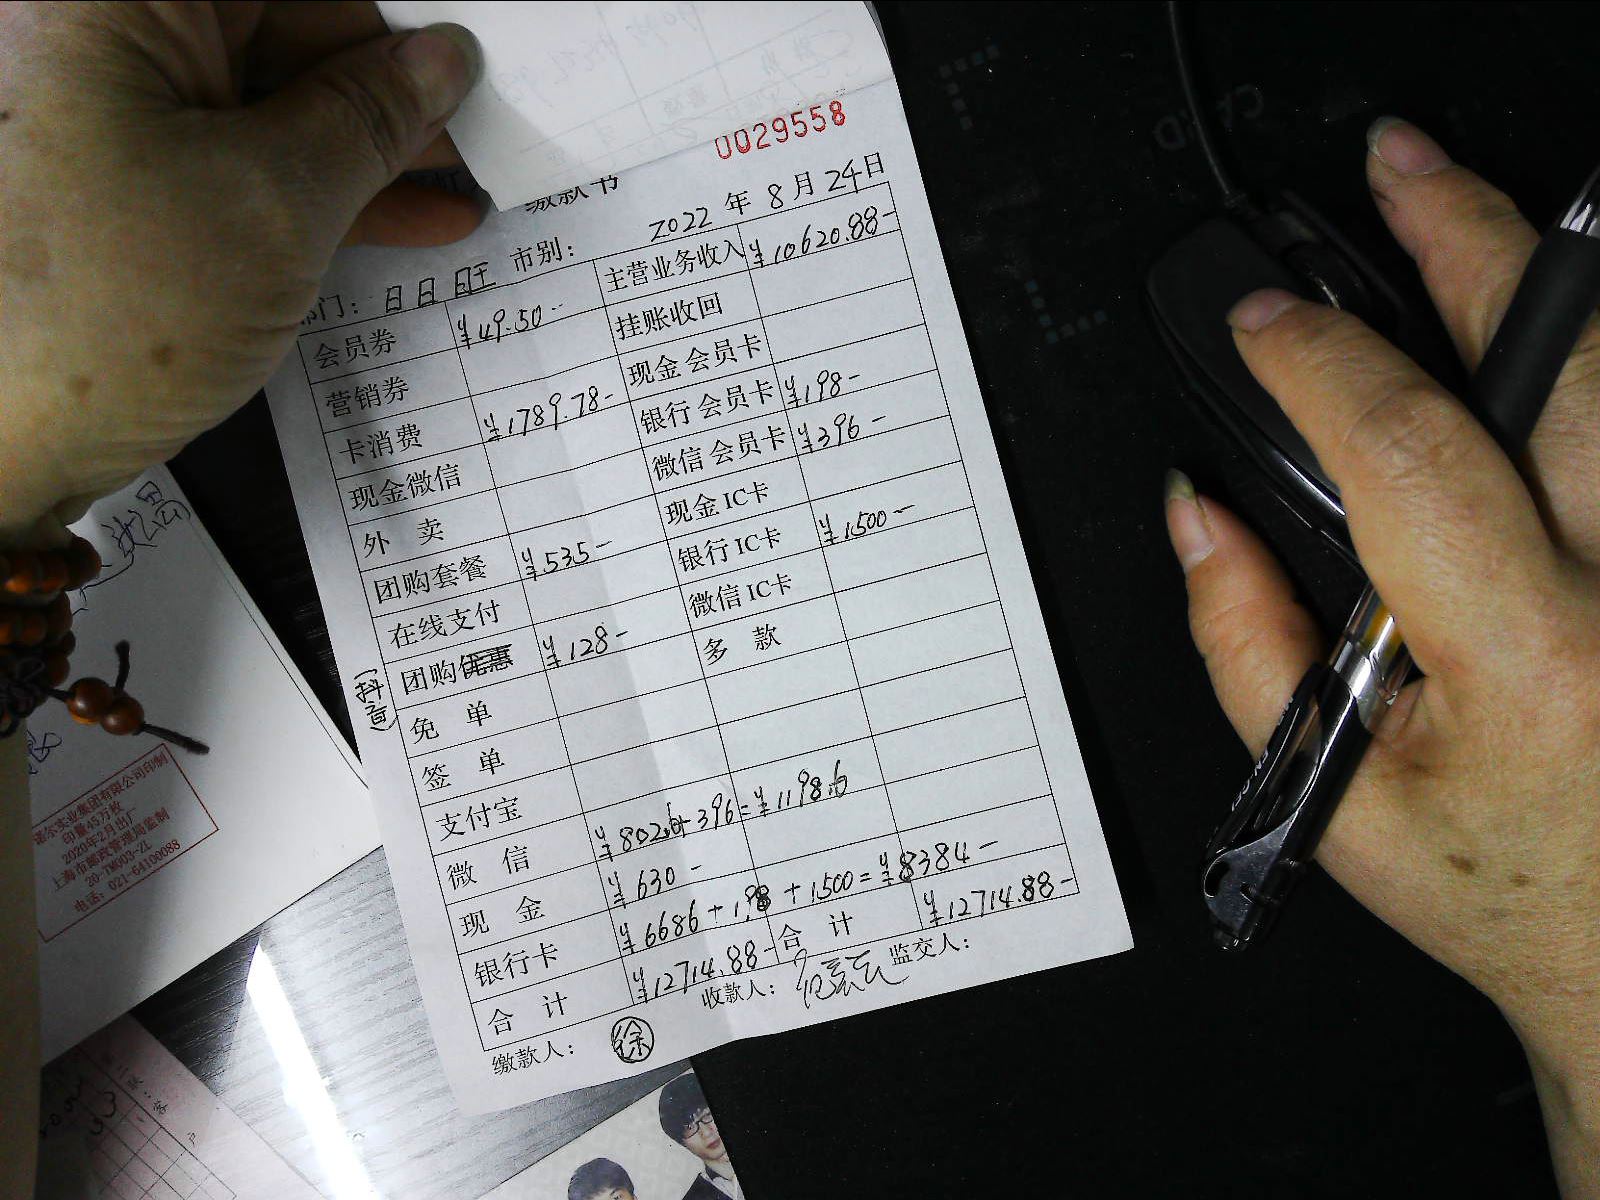 0029558
缴款书
部门: 日日旺 市别: 2022 年 8 月 24 日
会员券 ¥49.50- 主营业务收入 ¥10620.88-
营销券 挂账收回
卡消费 ¥1789.78- 现金会员卡
现金微信 银行会员卡 ¥198-
外 卖 微信会员卡 ¥396-
团购套餐 ¥535- 现金IC卡
在线支付 银行IC卡 ¥1500-
(抖音) 团购 ¥128- 微信IC卡
免 单 多 款
签 单
支付宝
微 信 ¥802.6+396=¥1198.6
现 金 ¥630-
银行卡 ¥6686+198+1500=¥8384-
合 计 ¥12714.88- 合 计 ¥12714.88-
缴款人: 徐 收款人: 监交人:
诺尔实业集团有限公司印制
印量45万枚
2020年2月出厂
上海市邮政管理局监制
20-TM003-ZL
电话: 021-64100088